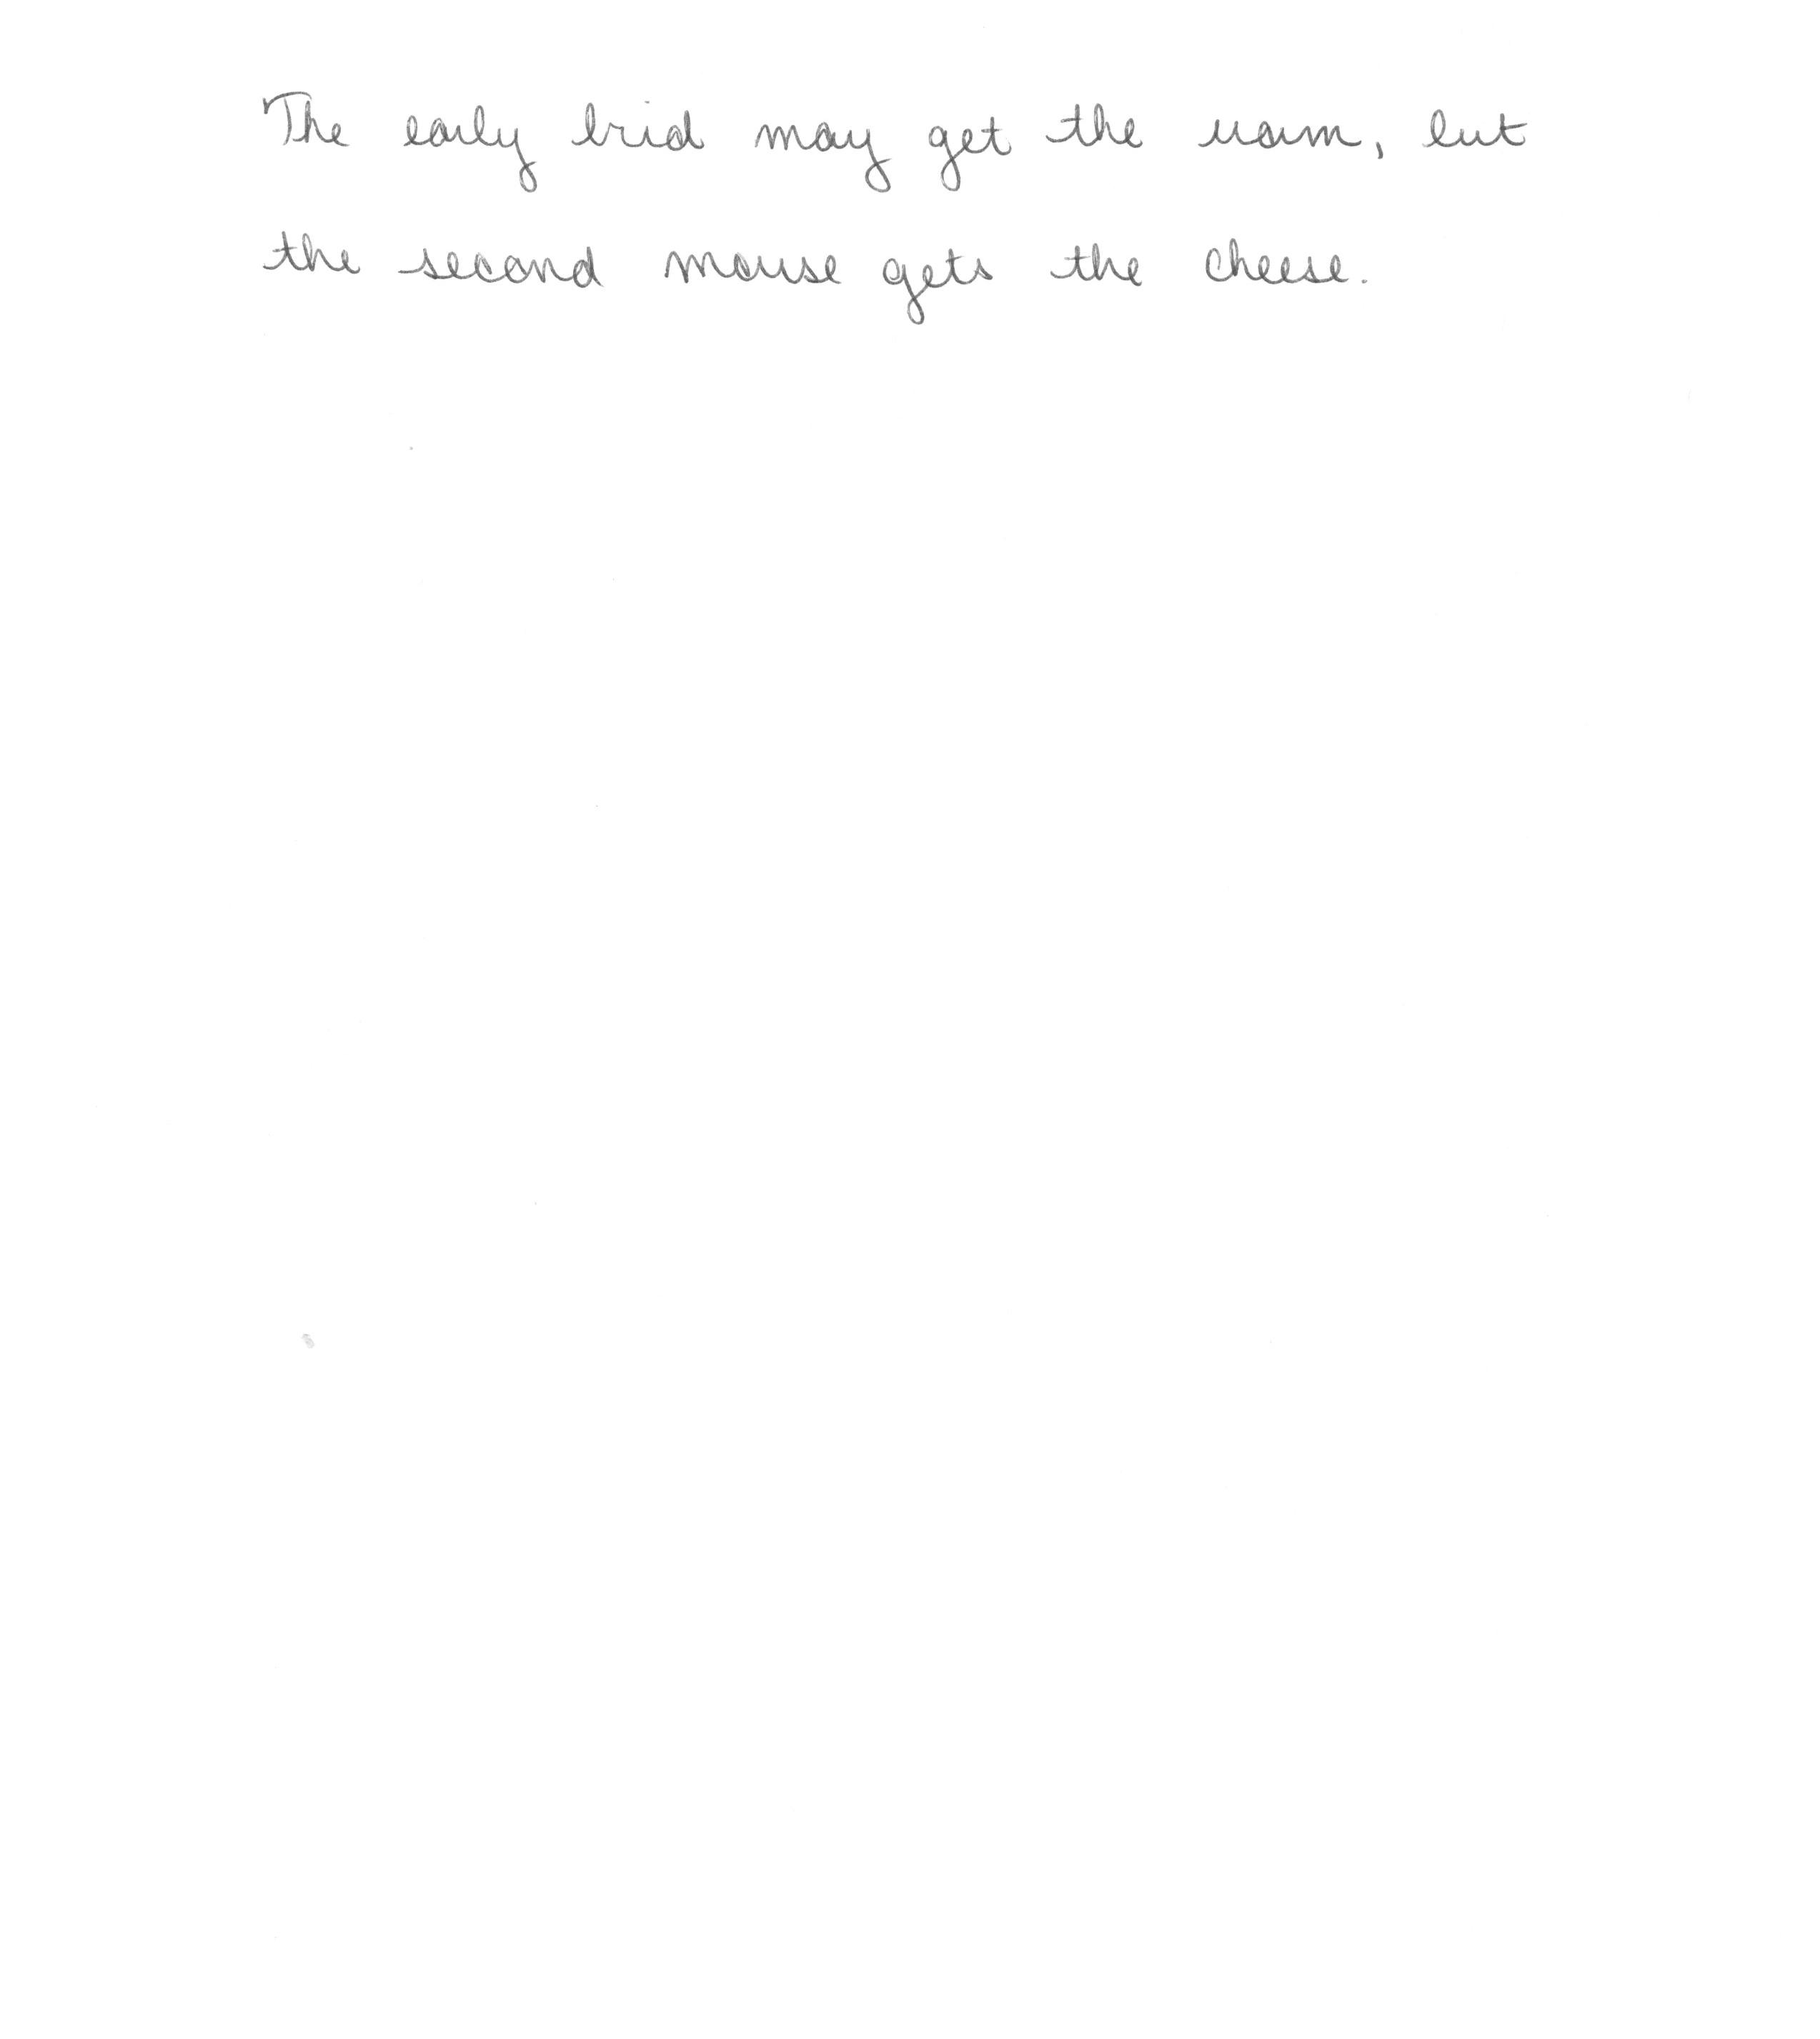 The early brid may get the worm, but
the second mouse gets the cheese.